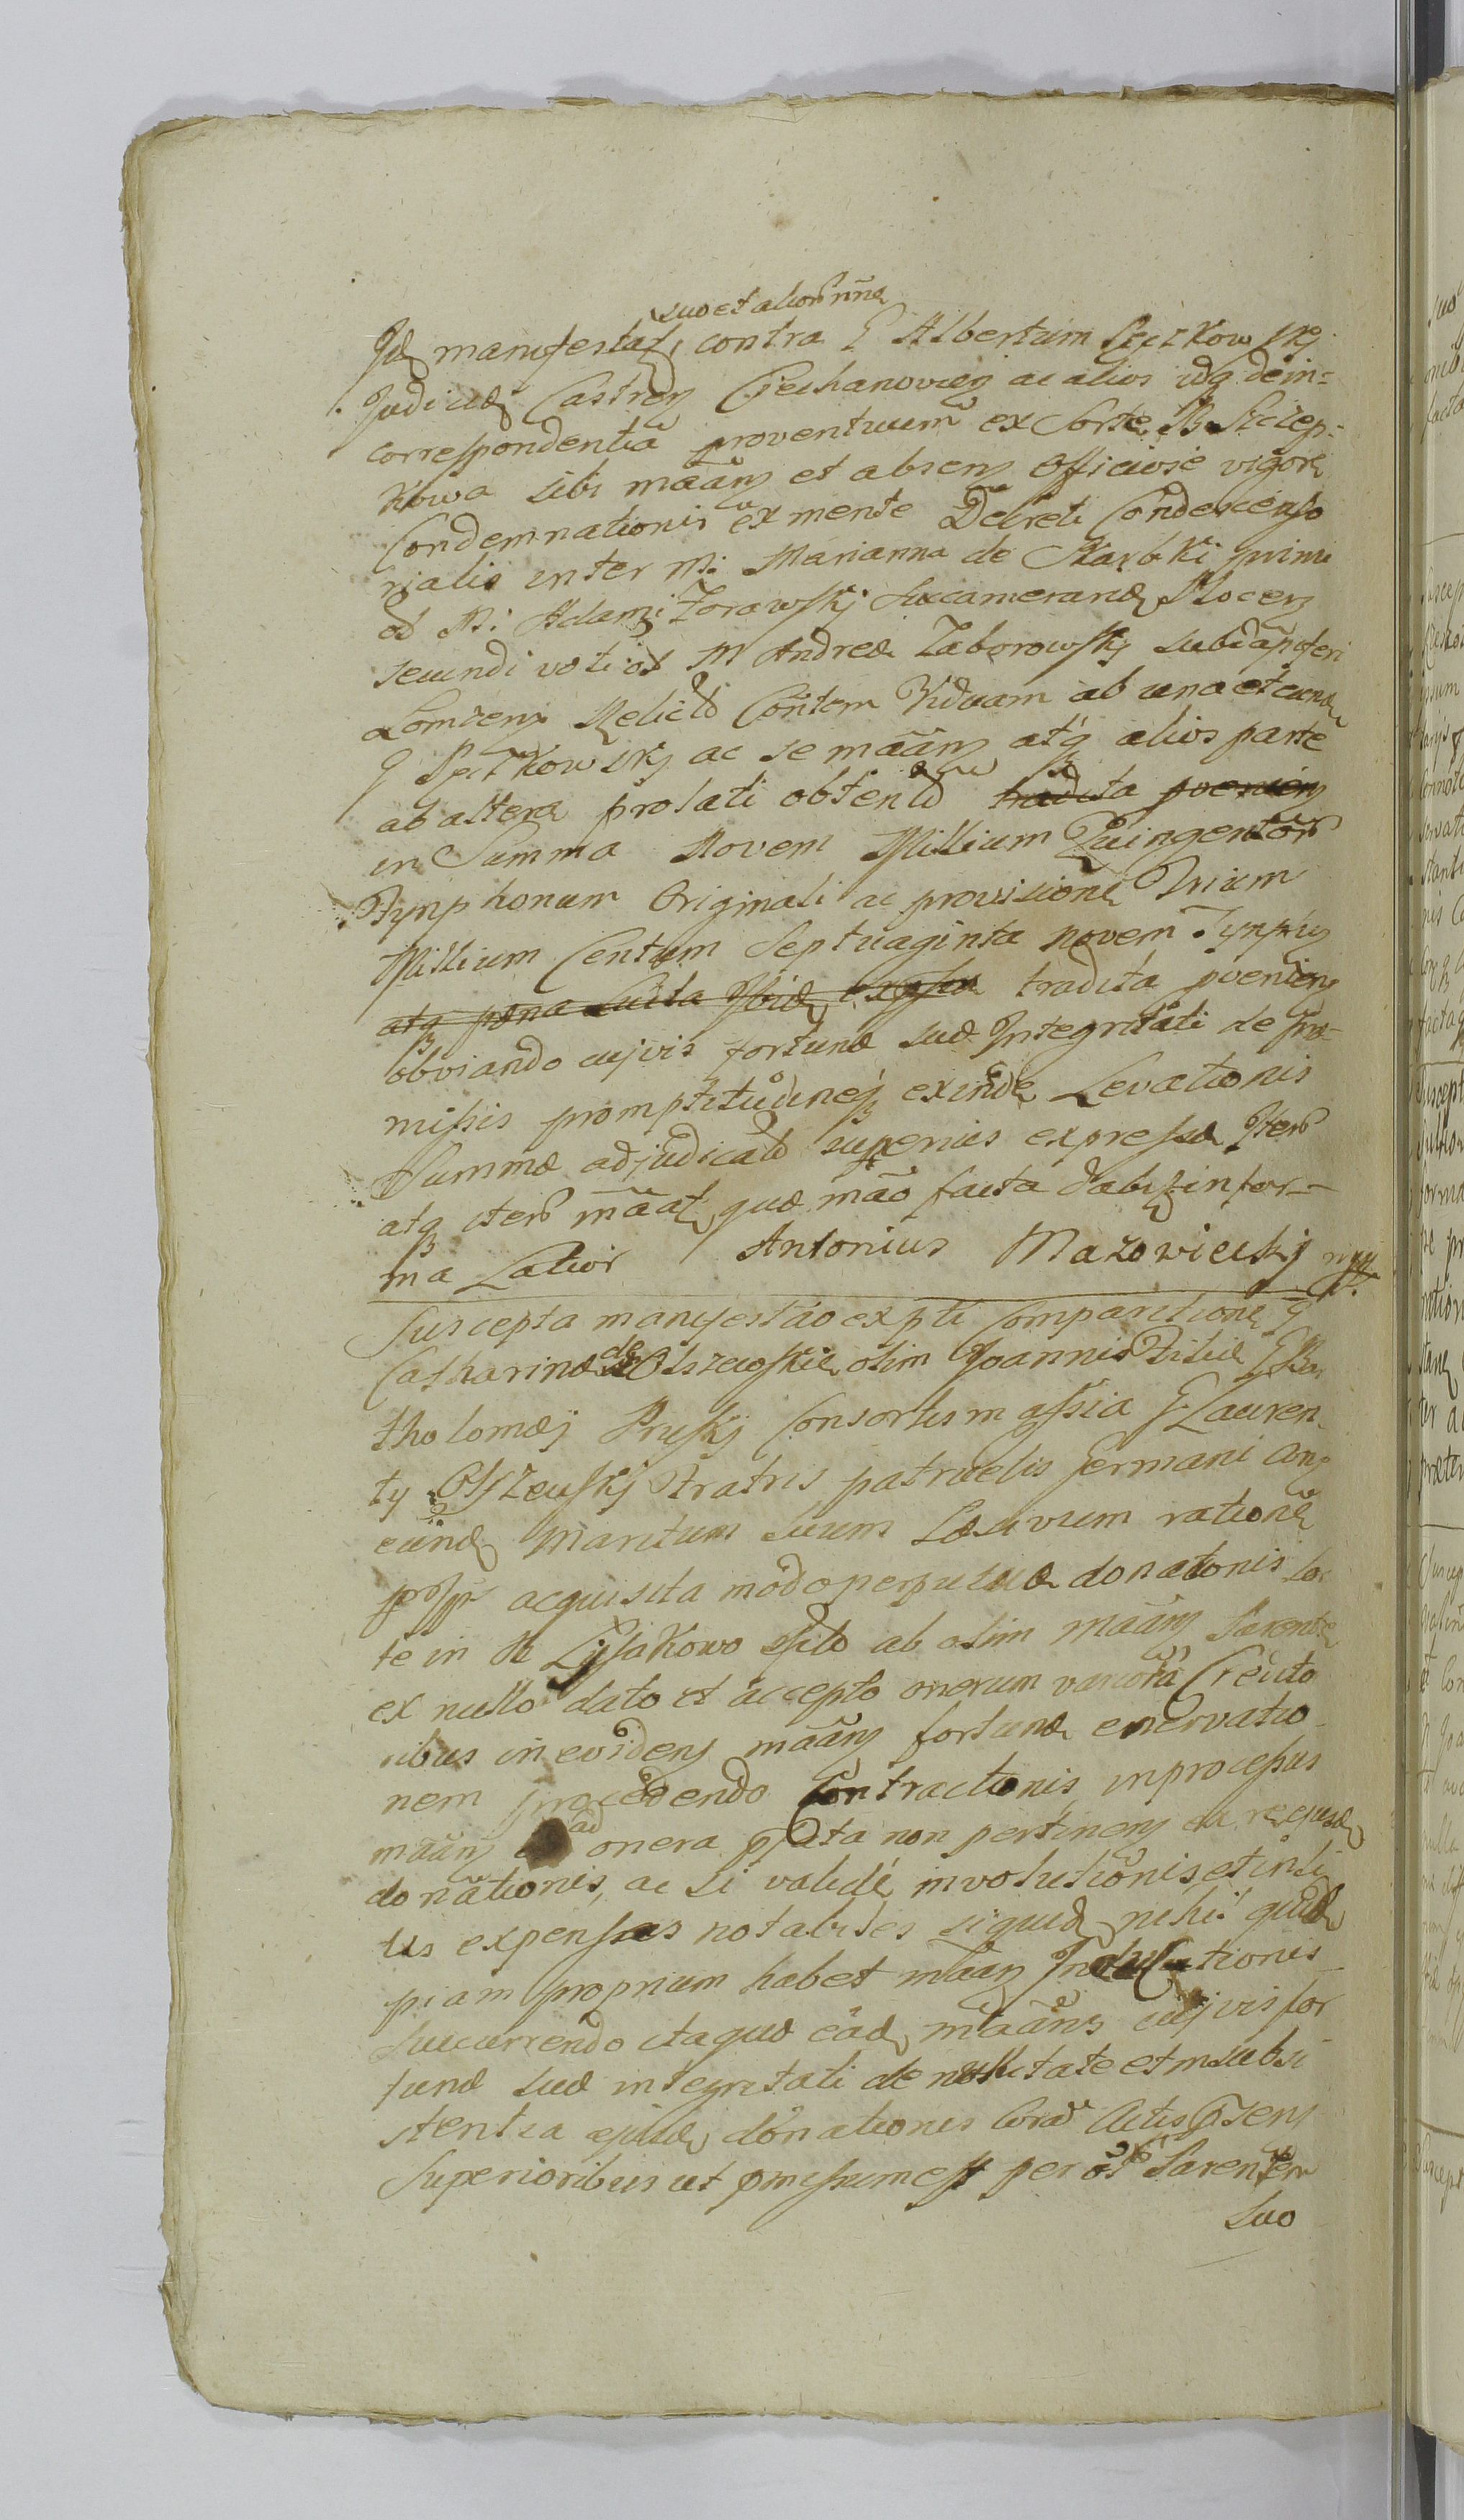 suo et alior nne
Id manifestat contra G Albertum Szczkowskj
Judicē Castren Ciechanovien ac alios idq dein=
correspondentia proventuum ex Sorte B. Szczep=
kowa sibi mãan et absen Officiose vigore
Condemnationis ex mente Decreti Condescenso
rialis inter M. Marianna de Skarbki primi
ad M. Adami Żorawskj Succameranæ Plocen
secundi voti ol M Andreæ Zaborowskj subdapiferi
Lomzen Relictā Contem Viduam ab una et eund
G Szczkowskj ac se mãan atq alios parte
ab altera prolati obtent tradita poenden
in Summa Novem Millium Quingentor
Tynphonum Originali ac provisione Trium
Millium Centum Septuaginta novem Tynphis
atq pæna Luita Ibid expssa tradita poenden
obviando cujvis fortunæ suæ Integritati de præ-
missis promptitudineq exinde Levationis
Summæ adjudicatæ superius expressæ Iter
atq iter mãat, quæ mão facta dabit in for-
ma Latior Antonius Mazowieckj mpp
Suscepta manifestão ex pti Comparitione G
Catharinæ de Olszewskie olim Joannis Filiæ G Bar
tholomæj Pruskj Consortis in assia G Lauren
ty Olszewskj Fratris patruelis Germani con
eund Maritum suum Læsivum ratione
p Ip acquisita modo perpetuæ donationis sor
te in B Lyssakowo ab olim mãan Parente
ex nullo dato et accepto onerum varior Credito
ribus in eviden mãan fortunæ enervatio
nem procedendo Contractionis in processus
mãan ad onera pfata non pertinen ea re ejusd
donationis, ac si validé involutionis et in li
tis expensas notabiles siquid nihil quid
piam proprium habet mãan Inductionis
Succurrendo itaque ead mãans cujvis for
tunæ suæ integritati de nullitate et insubsi
stentia ejusd donationis Corã Actis psen
Superioribus ut pmissum est per ol Parentem
suo